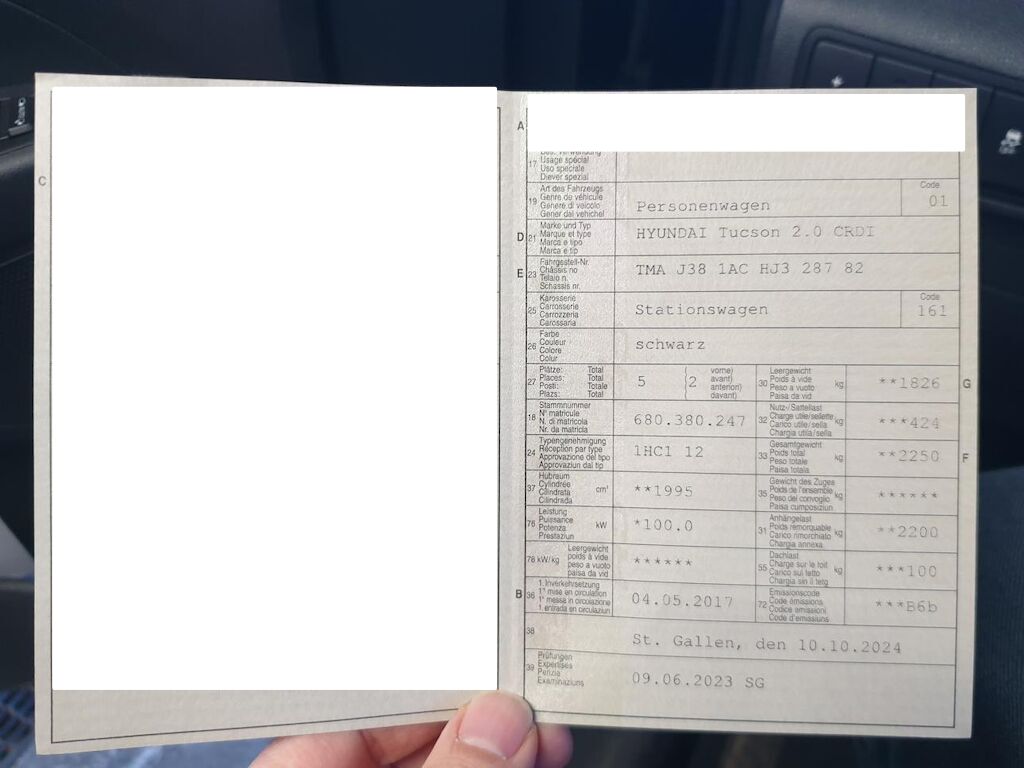 C
A
17
Usage spécial
Uso speciale
Diever spezial
19 Art des Fahrzeugs
Genre de véhicule
Genere di veicolo
Gener dal vehichel
Personenwagen
Code
01
D 21 Marke und Typ
Marque et type
Marca e tipo
Marca e tip
HYUNDAI Tucson 2.0 CRDI
E 23 Fahrgestell-Nr.
Châssis no
Telaio n.
Schassis nr.
TMA J38 1AC HJ3 287 82
25 Karosserie
Carrosserie
Carrozzeria
Carossaria
Stationswagen
Code
161
26 Farbe
Couleur
Colore
Colur
schwarz
27 Plätze: Total
Places: Total
Posti: Totale
Plazs: Total
5 (2 vorne)
avant)
anteriori)
davant)
30 Leergewicht
Poids à vide
Peso a vuoto
Paisa da vid
kg
**1826
G
18 Stammnummer
N° matricule
N. di matricola
Nr. da matricla
680.380.247
32 Nutz-/Sattellast
Charge utile/sellette
Carico utile/sella
Chargia utila/sella
kg
***424
24 Typengenehmigung
Réception par type
Approvazione del tipo
Approvaziun dal tip
1HC1 12
33 Gesamtgewicht
Poids total
Peso totale
Paisa totala
kg
**2250
F
37 Hubraum
Cylindrée
Cilindrata
Cilindrada
cm³
**1995
35 Gewicht des Zuges
Poids de l'ensemble
Peso del convoglio
Paisa cumposiziun
kg
******
76 Leistung
Puissance
Potenza
Prestaziun
kW
*100.0
31 Anhängelast
Poids remorquable
Carico rimorchiato
Chargia annexa
kg
**2200
78 kW/kg Leergewicht
poids à vide
peso a vuoto
paisa da vid
******
55 Dachlast
Charge sur le toit
Carico sul tetto
Chargia sin il tetg
kg
***100
B 36 1. Inverkehrsetzung
1re mise en circulation
1a messa in circolazione
1. entrada en circulaziun
04.05.2017
72 Emissionscode
Code émissions
Codice emissioni
Code d'emissiuns
***B6b
38
St. Gallen, den 10.10.2024
39 Prüfungen
Expertises
Perizia
Examinaziuns
09.06.2023 SG